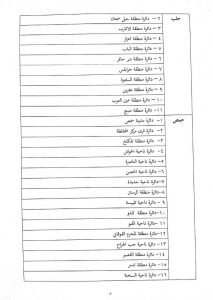 حلب
٢ – دائرة منطقة جبل سمعان
٣ – دائرة منطقة الأتارب
٤ – دائرة منطقة اعزاز
٥ – دائرة منطقة الباب
٦ – دائرة منطقة دير حافر
٧ – دائرة منطقة جرابلس
٨ – دائرة منطقة السفيرة
٩ – دائرة منطقة عفرين
١٠ – دائرة منطقة عين العرب
١١ – دائرة منطقة منبج
حمص
١ – دائرة مدينة حمص
٢ – دائرة قرى مركز المحافظة
٣ – دائرة منطقة تلكلخ
٤ – دائرة ناحية الحواش
٥ – دائرة ناحية الناصرة
٦ – دائرة ناحية الحصن
٧ – دائرة ناحية حديدة
٨ – دائرة منطقة الرستن
٩ – دائرة ناحية تلبيسة
١٠ – دائرة منطقة تلدو
١١ – دائرة ناحية القبو
١٢ – دائرة منطقة المخرم الفوقاني
١٣ – دائرة ناحية جب الجراح
١٤ – دائرة منطقة القصير
١٥ – دائرة منطقة تدمر
١٦ – دائرة ناحية السخنة